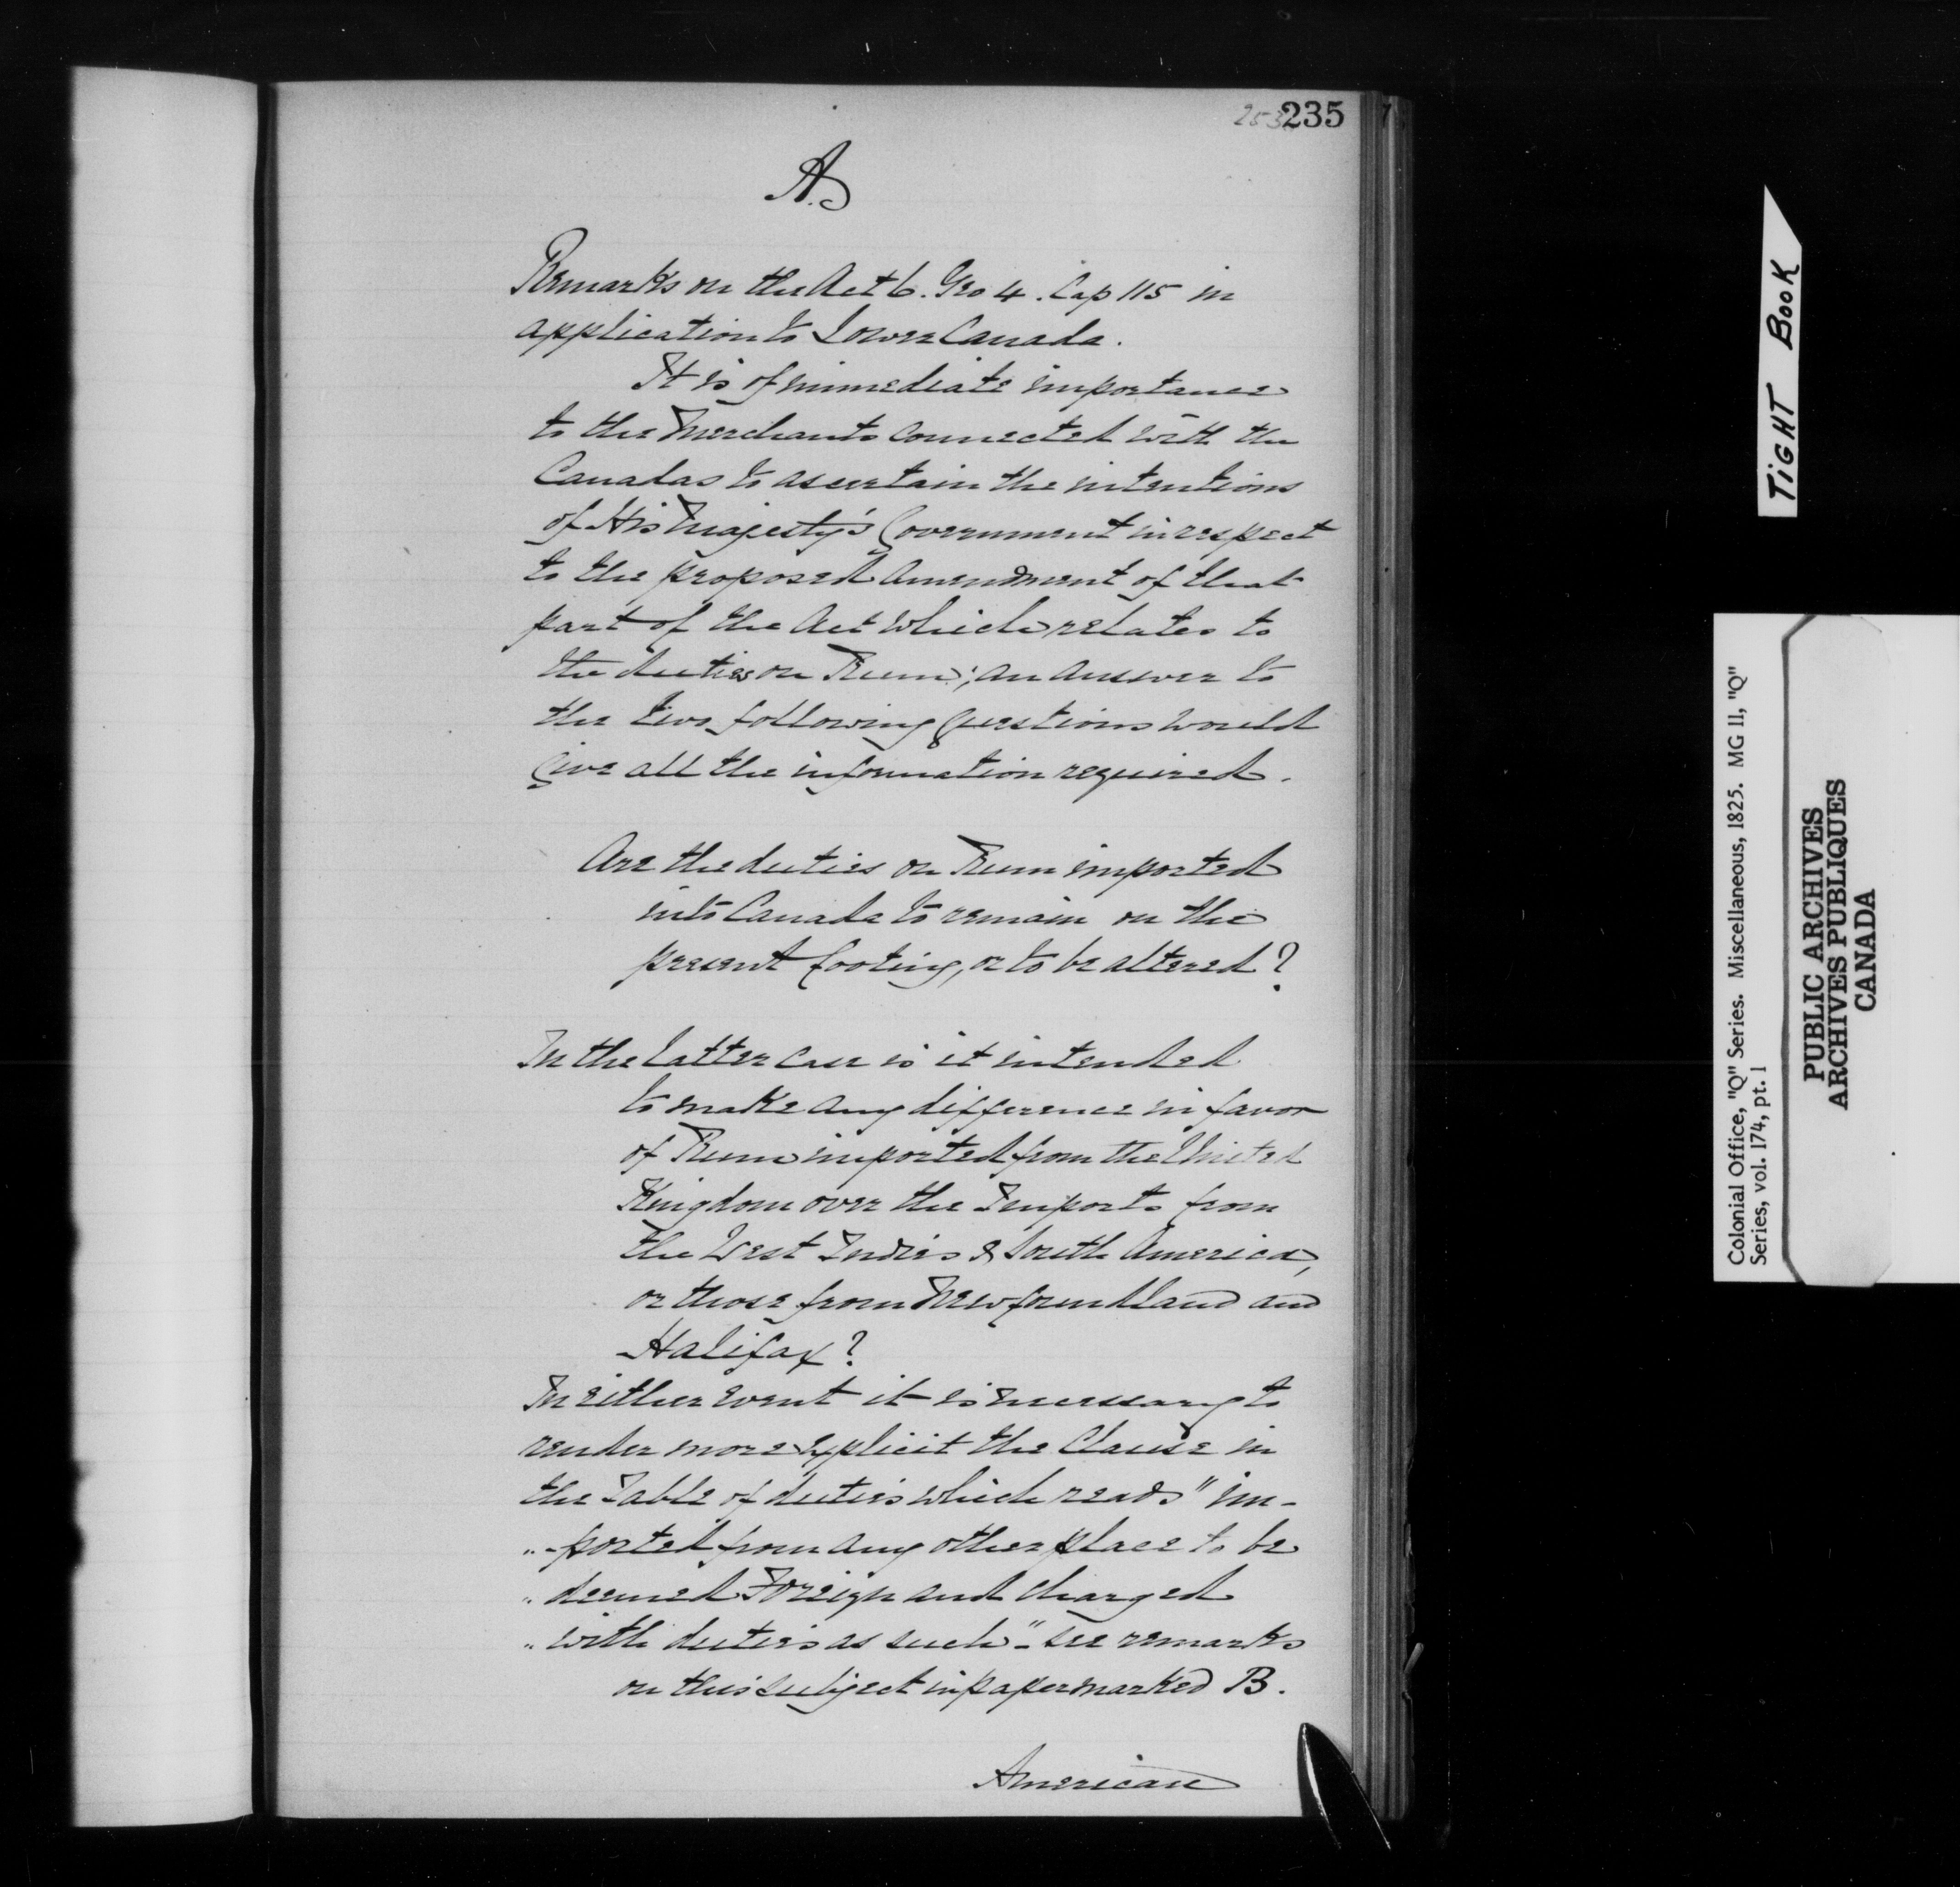 235
A.
Remarks on the Act 6. Geo 4. Cap 115 in
application to Lower Canada.
It is of immediate importance
to the Merchants connected with the
Canadas to ascertain the intentions
of His Majesty's Government in respect
to the proposed Amendment of that
part of the Act which relates to
the duties on Rum; an answer to
the two following Questions would
Give all the information required.
Are the duties on Rum imported
into Canada to remain on the
present footing, or to be altered?
In the latter case is it intended
to make any difference in favor
of Rum imported from the United
Kingdom over the Imports from
the West Indies & South America,
or those from Newfoundland and
Halifax?
In either event it is necessary to
render more explicit the Clause in
the Table of duties which reads "im-
"-ported from any other place to be
"deemed Foreign and charged
"with duties as such" - see remarks
on this subject in paper marked B.
American
TIGHT BOOK
Colonial Office, "Q" Series. Miscellaneous, 1825. MG 11, "Q"
Series, vol. 174, pt. 1
PUBLIC ARCHIVES
ARCHIVES PUBLIQUES
CANADA